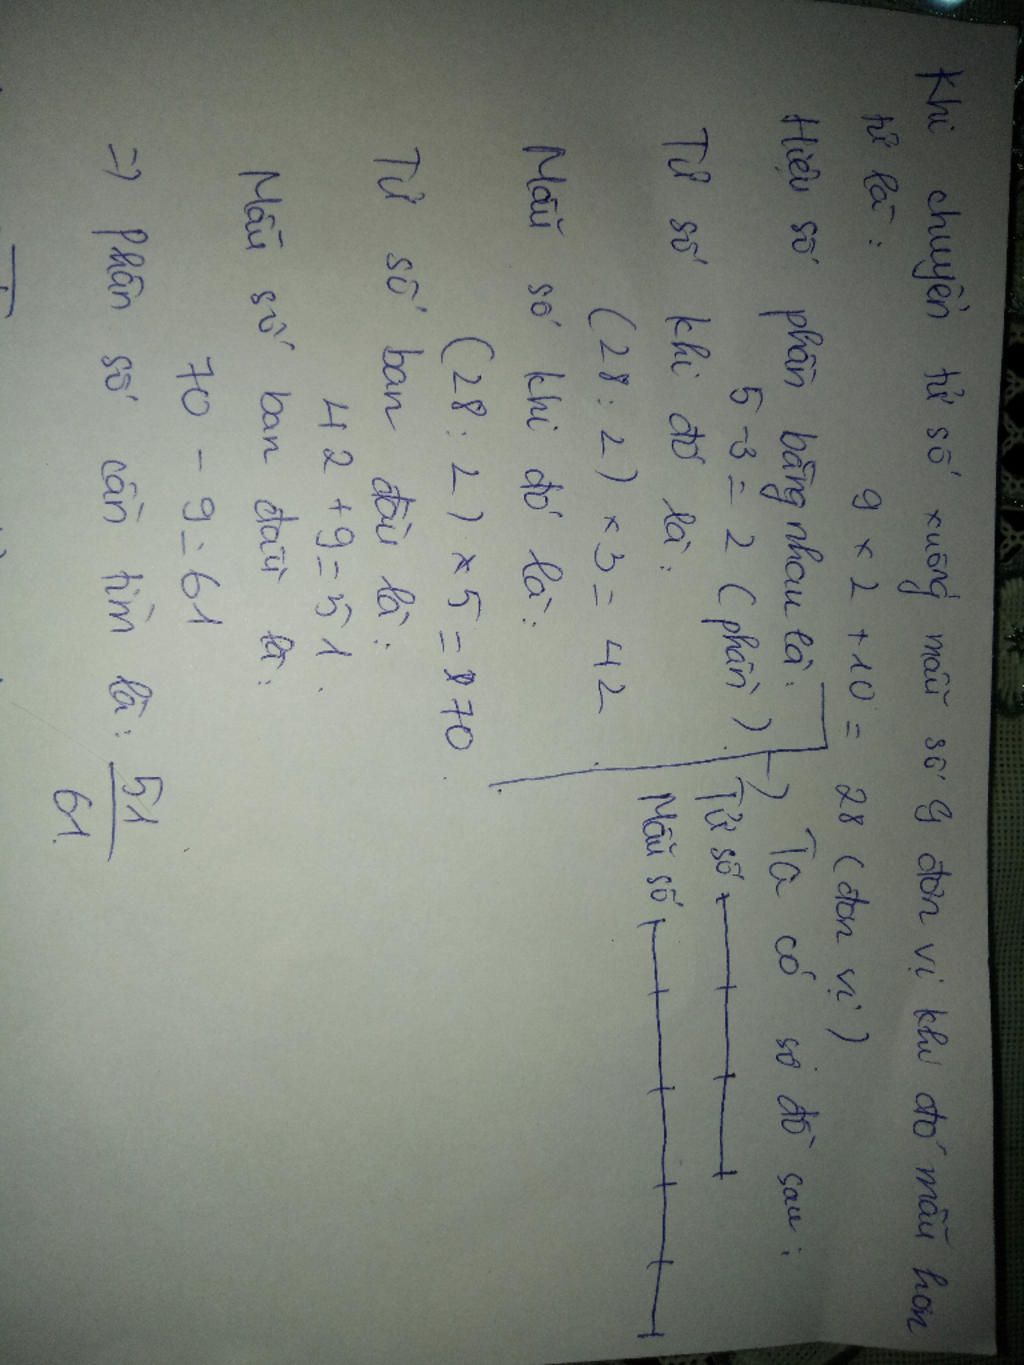 Khi chuyển từ số xuống mẫu số 9 đơn vị khi đó mẫu hơn
tử là:
9 × 2 + 10 = 28 (đơn vị)
Hiệu số phần bằng nhau là:
5 - 3 = 2 (phần)
Ta có sơ đồ sau:
Tử số
Mẫu số
Tử số khi đó là:
(28 : 2) × 3 = 42
Mẫu số khi đó là:
(28 : 2) × 5 = 70
Tử số ban đầu là:
42 + 9 = 51.
Mẫu số ban đầu là:
70 - 9 = 61
=> Phân số cần tìm là: 51
61.